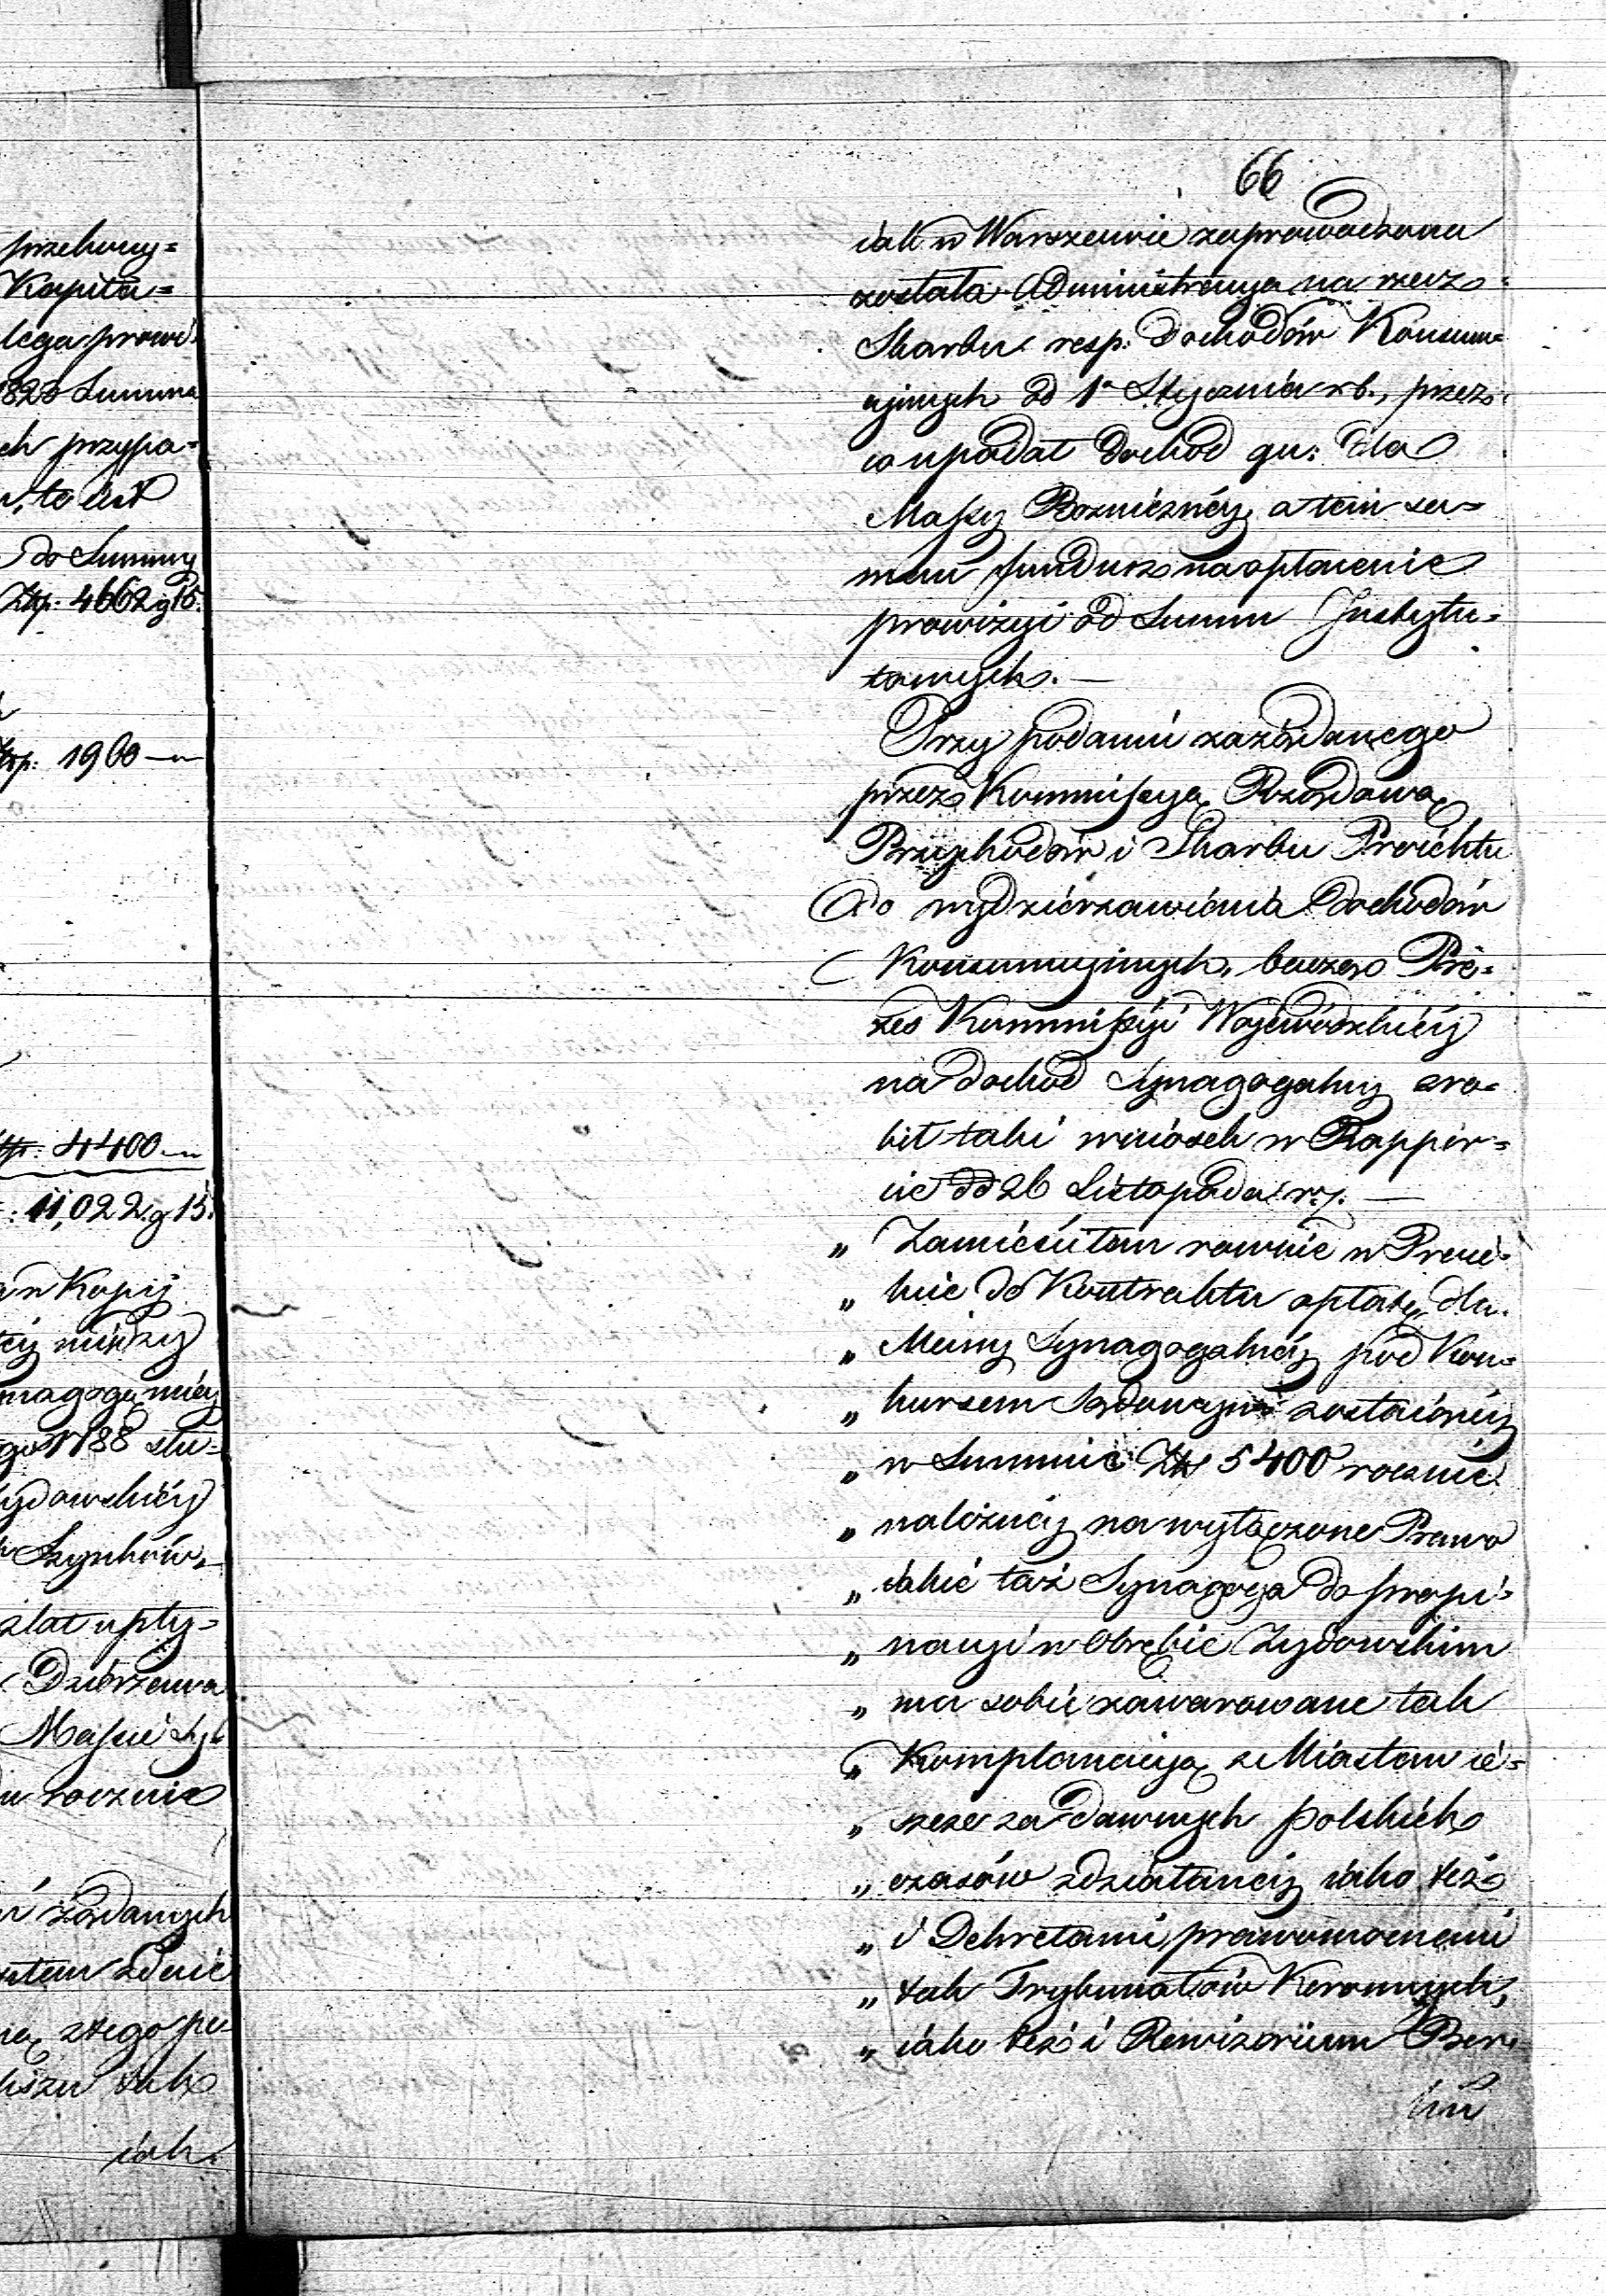 przehowy=
Kapita=
lega prowi
823 Summa
ch przypa=
to iest
do Summy
Złp: 4662 g 15.
złp: 1960 —
złp: 4400 —
: 11,022. g 15.
w Kopij
między
nagogą
1788
Żydowskiéy
Szynków
z lat upły=
Dzierzawa
Massie
rocznie
żądanych
z tego po
tak
iak
66
iak w Warszawie zaprowadzona
została Administracya na rzecz
Skarbu resp: Dochodów Konsum=
cyinych od 1° Stycznia rb., przez
co upadał dochod gu: dla
Massy Boznicznéy, a tem sa=
mem fundusz na opłacenie
prowizyi od Summ Instytu=
towych. —
Przy podaniu zażądanego
przez Kommissyą Rządową
Przychodów i Skarbu Proiektu
do wydzierzawienia dochodów
Konsumcyinych, baczył Pre=
zes Kommissyi Wojewodzkiéy
na dochod Synagogalny zro=
bił taki wniosek w Rappor=
cie dd 26 Listopada r. z. —
„ Zamieściłem rownie w Proie=
„ kcie do Kontraktu opłatę dla
„ Massy Synagogalnéy pod Kon=
„ kursem Sądowym zostaiącéy
„ w Summie Złp 5400 rocznie
„ należnéy na wyłączone Prawo
„ iakie taż Synagoga do propi=
„ nacyi w Obrębie Żydowskim
„ ma sobie zawarowane tak
„ Komplanacyą z Miastem ie=
„ szcze za dawnych polskich
„ czasów zdziałanéy iako też
„ i Dekretami prawomocnemi
„ tak Trybunałów Koronnych,
„ iako też i Rewizorium Ber=
lin